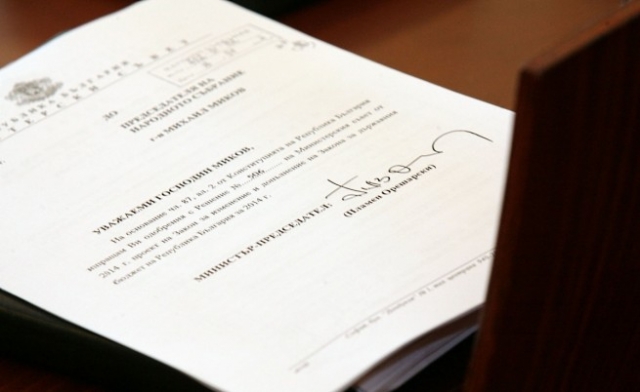 РЕПУБЛИКА БЪЛГАРИЯ
МИНИСТЕРСКИ СЪВЕТ
ДО
ПРЕДСЕДАТЕЛЯ НА
НАРОДНОТО СЪБРАНИЕ
г-н МИХАИЛ МИКОВ
УВАЖАЕМИ ГОСПОДИН МИКОВ,
На основание чл. 87, ал. 2 от Конституцията на Република България
изпращам Ви одобрения с Решение № 506 на Министерския съвет от
2014 г. проект на Закон за изменение и допълнение на Закона за държавния
бюджет на Република България за 2014 г.
МИНИСТЪР-ПРЕДСЕДАТЕЛ:
(Пламен Орешарски)